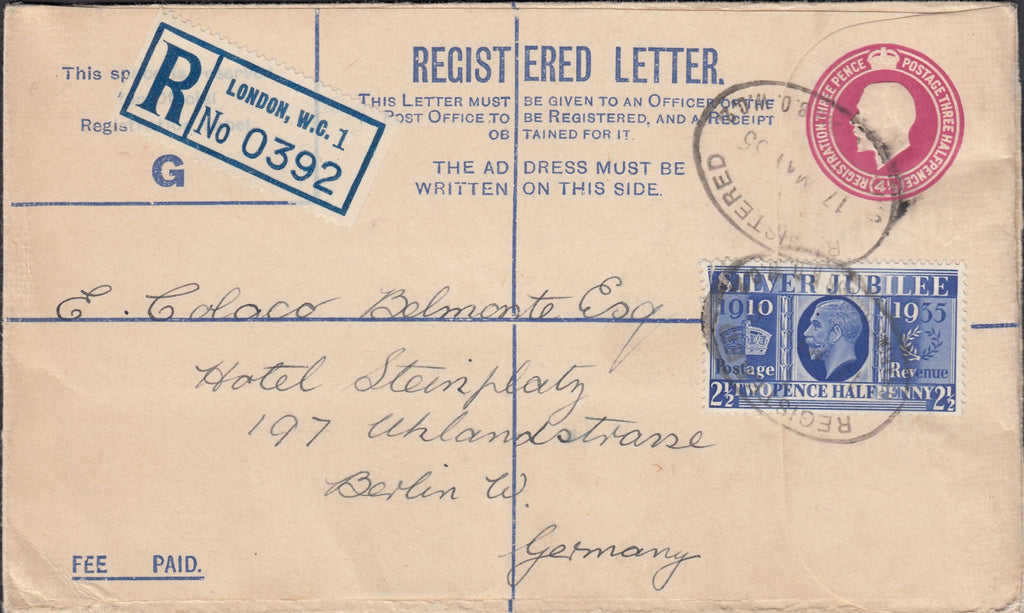 REGISTERED LETTER.
THIS LETTER MUST BE GIVEN TO AN OFFICER OF THE
POST OFFICE TO BE REGISTERED, AND A RECEIPT
OBTAINED FOR IT.
THE ADDRESS MUST BE
WRITTEN ON THIS SIDE.
This
G
R
LONDON, W.C. 1
No 0392
REGISTRATION THREE PENCE POSTAGE THREE HALFPENCE
REGISTERED
17 MAY 35
SILVER JUBILEE
1910 1935
Postage Revenue
2½ TWO PENCE HALFPENNY 2½
E. Colaco Belmonte Esq
Hotel Steinplatz
197 Uhlandstrasse
Berlin W.
Germany
FEE PAID.